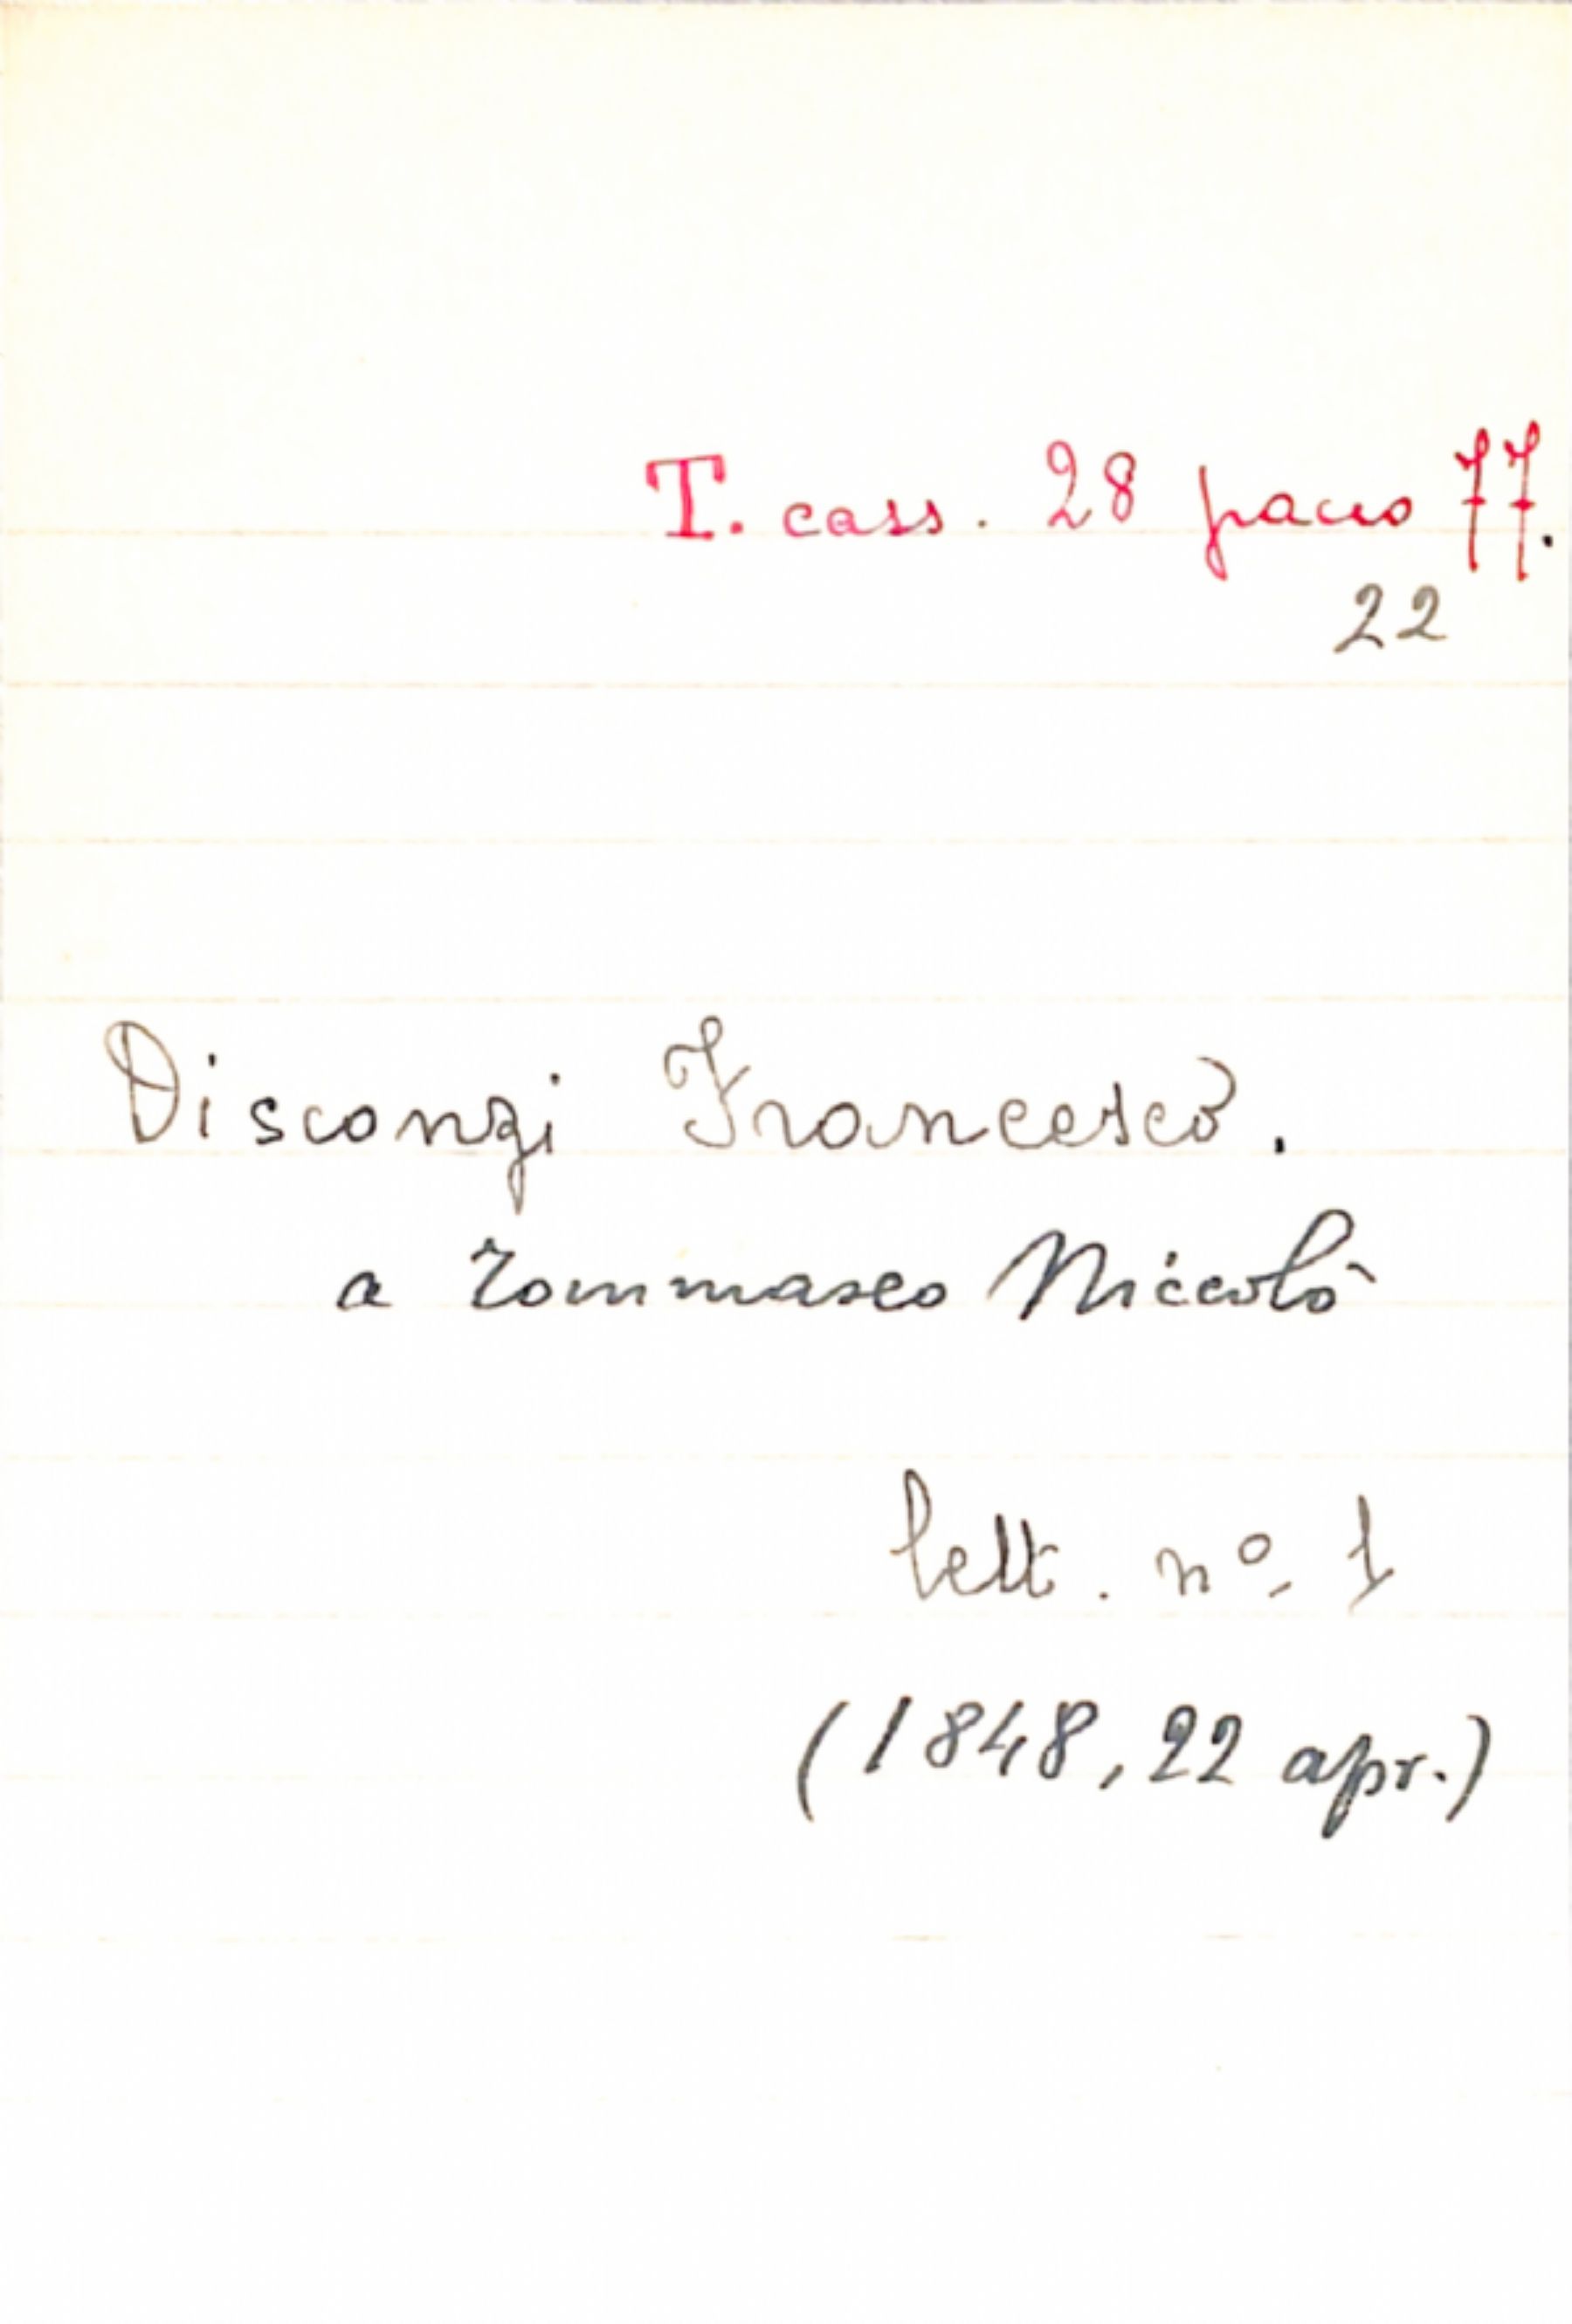 T. cass. 28 pacco 77.
22
Disconzi Francesco.
a Tommaseo Niccolò
lett. nº. 1
(1848, 22 apr.)